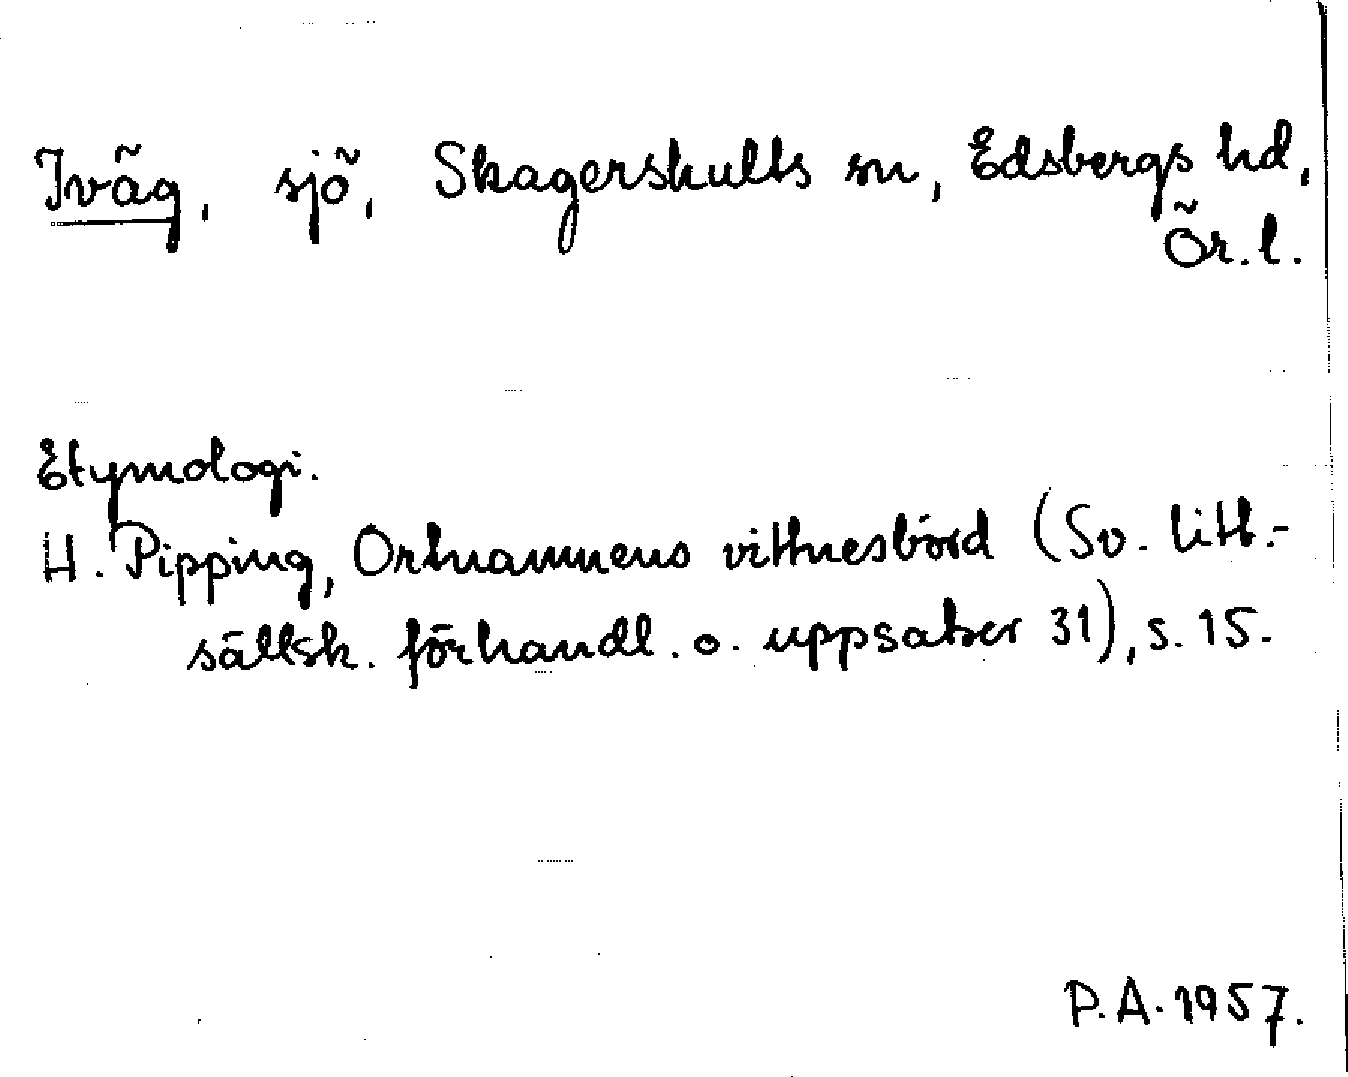 Iväg, sjö, Skagershults sn, Edsbergs hd,
Ör. l.
Etymologi.
H. Pipping, Ortnamnens vittnesbörd (Sv. litt.-
sällsk. förhandl. o. uppsatser 31), s. 15.
P. A. 1957.